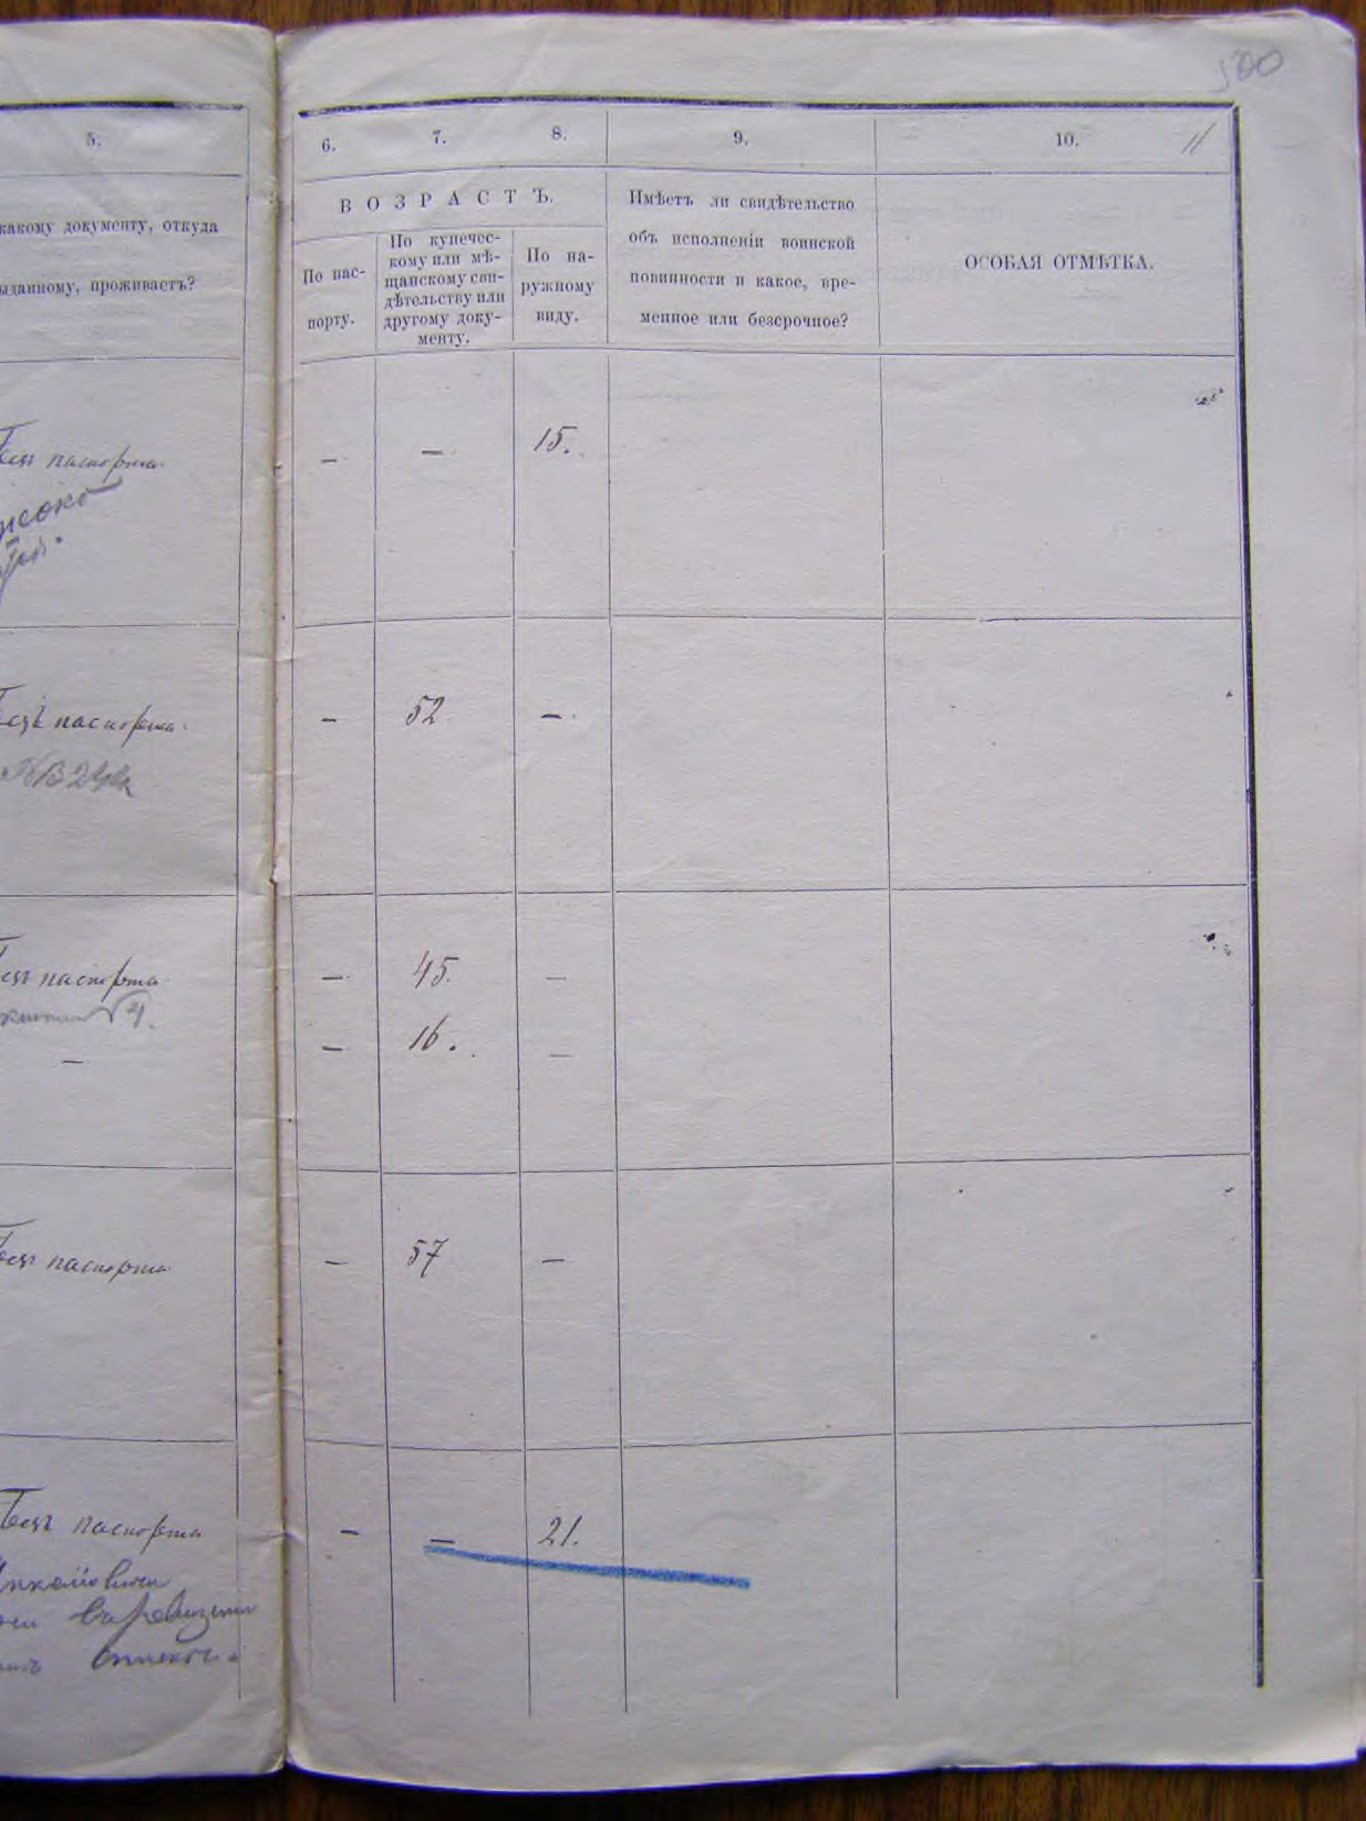 500
5.
какому документу, откуда
ыданному, проживаетъ?
6.
7.
8.
9.
10.
11
ВОЗРАСТЪ.
По пас-
порту.
По купечес-
кому или мѣ-
щанскому сви-
дѣтельству или
другому доку-
менту.
По на-
ружному
виду.
Имѣетъ ли свидѣтельство
объ исполненіи воинской
повинности и какое, вре-
менное или безсрочное?
ОСОБАЯ ОТМѢТКА.
Безъ паспорта.
— — 15.
Безъ паспорта.
— 52 —
Безъ паспорта
— 45. —
— — 16. —
Безъ паспорта
— 57 —
Безъ паспорта
— — 21.